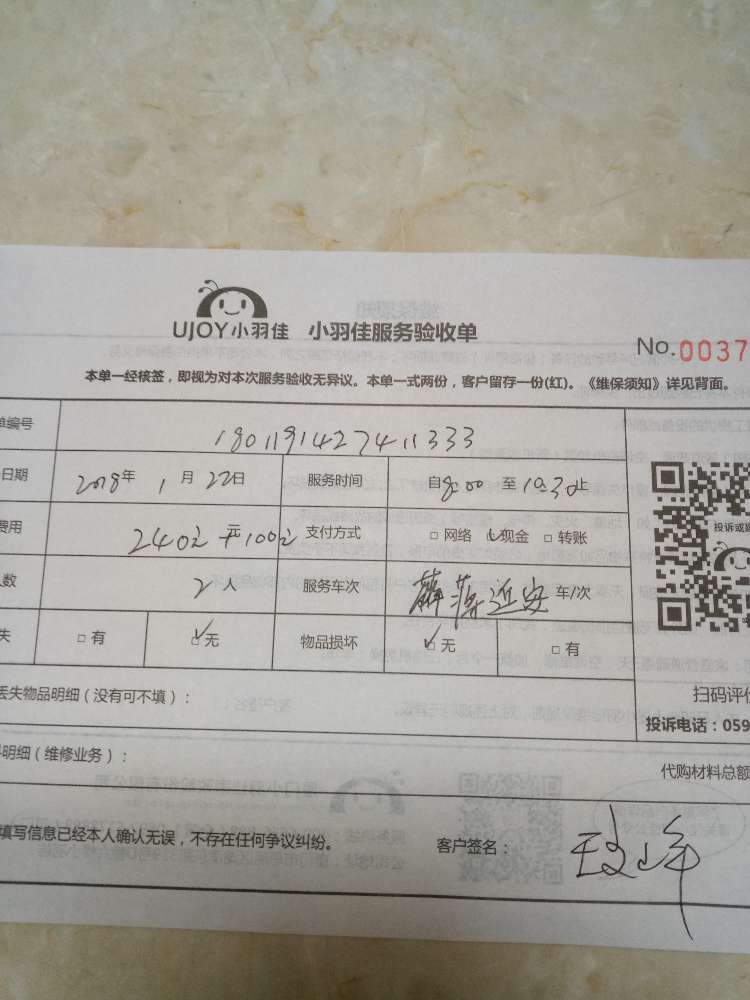 UJOY小羽佳 小羽佳服务验收单
No.0037
本单一经核签，即视为对本次服务验收无异议。本单一式两份，客户留存一份(红)。《维保须知》详见背面。
单编号 1801191427411333
日期 2018年 1月22日 服务时间 自8:00至10:30止
费用 240元 元+100元 支付方式 □网络 ☑现金 □转账
人数 2人 服务车次 车/次
失 □有 ☑无 物品损坏 ☑无 □有
投诉或
丢失物品明细（没有可不填）：
扫码评价
投诉电话：059
明细（维修业务）：
代购材料总额
填写信息已经本人确认无误，不存在任何争议纠纷。 客户签名：